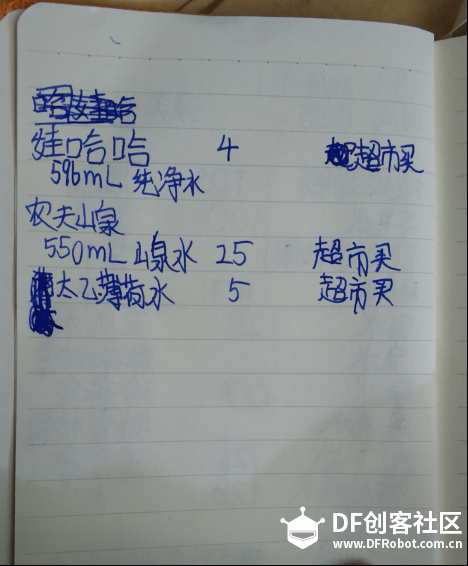 娃哈哈 4 超市买
596mL 纯净水
农夫山泉
550mL 山泉水 25 超市买
太乙薄荷水 5 超市买
DF创客社区
www.DFRobot.com.cn